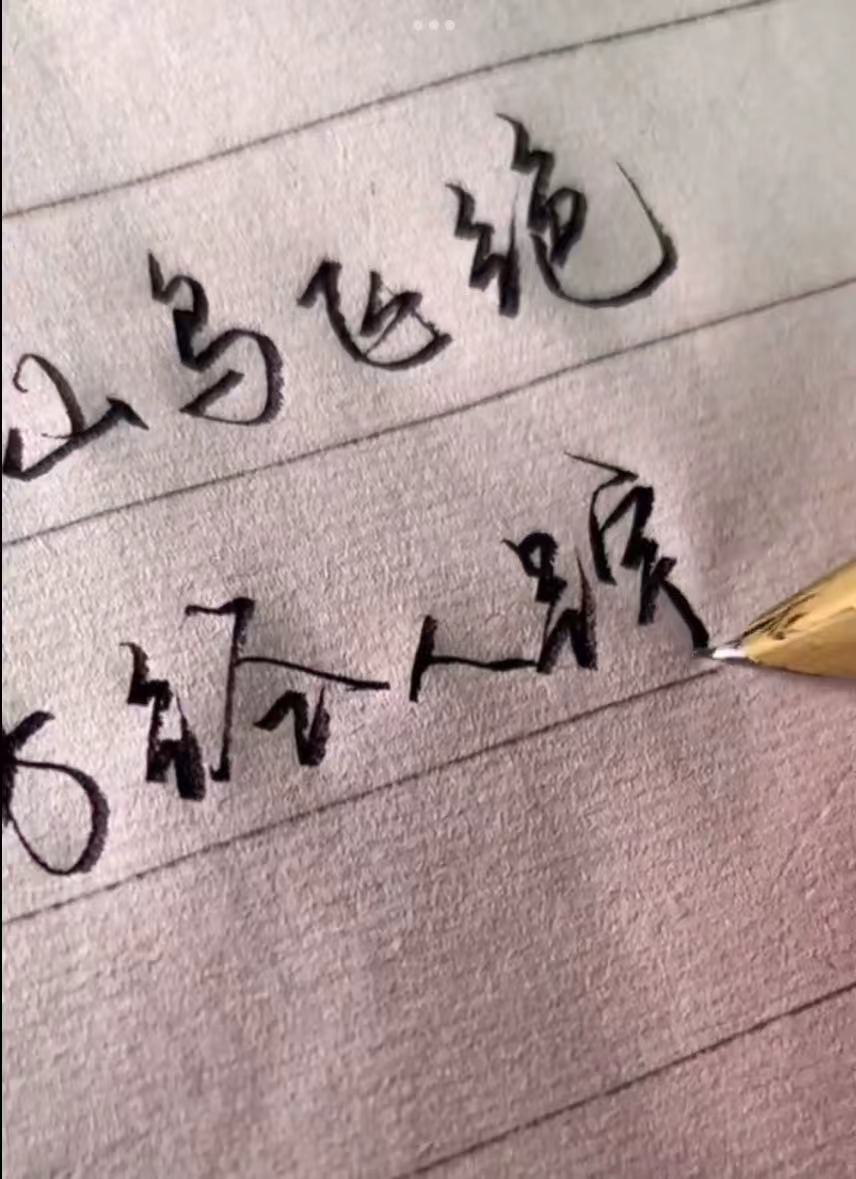 山鸟飞绝
万经人踪